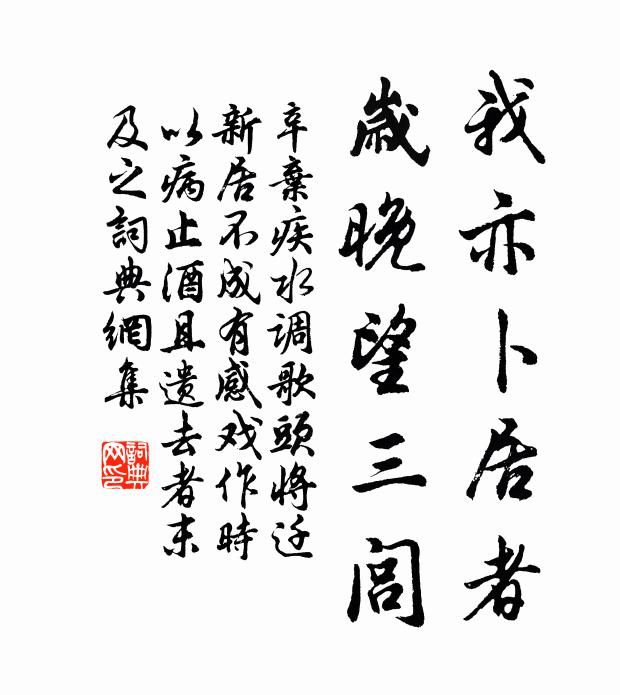 我亦卜居者
歲晚望三閭
辛棄疾水调歌頭將迁
新居不成有感戏作時
以病止酒且遣去者末
及之詞典網集
詞典
网印